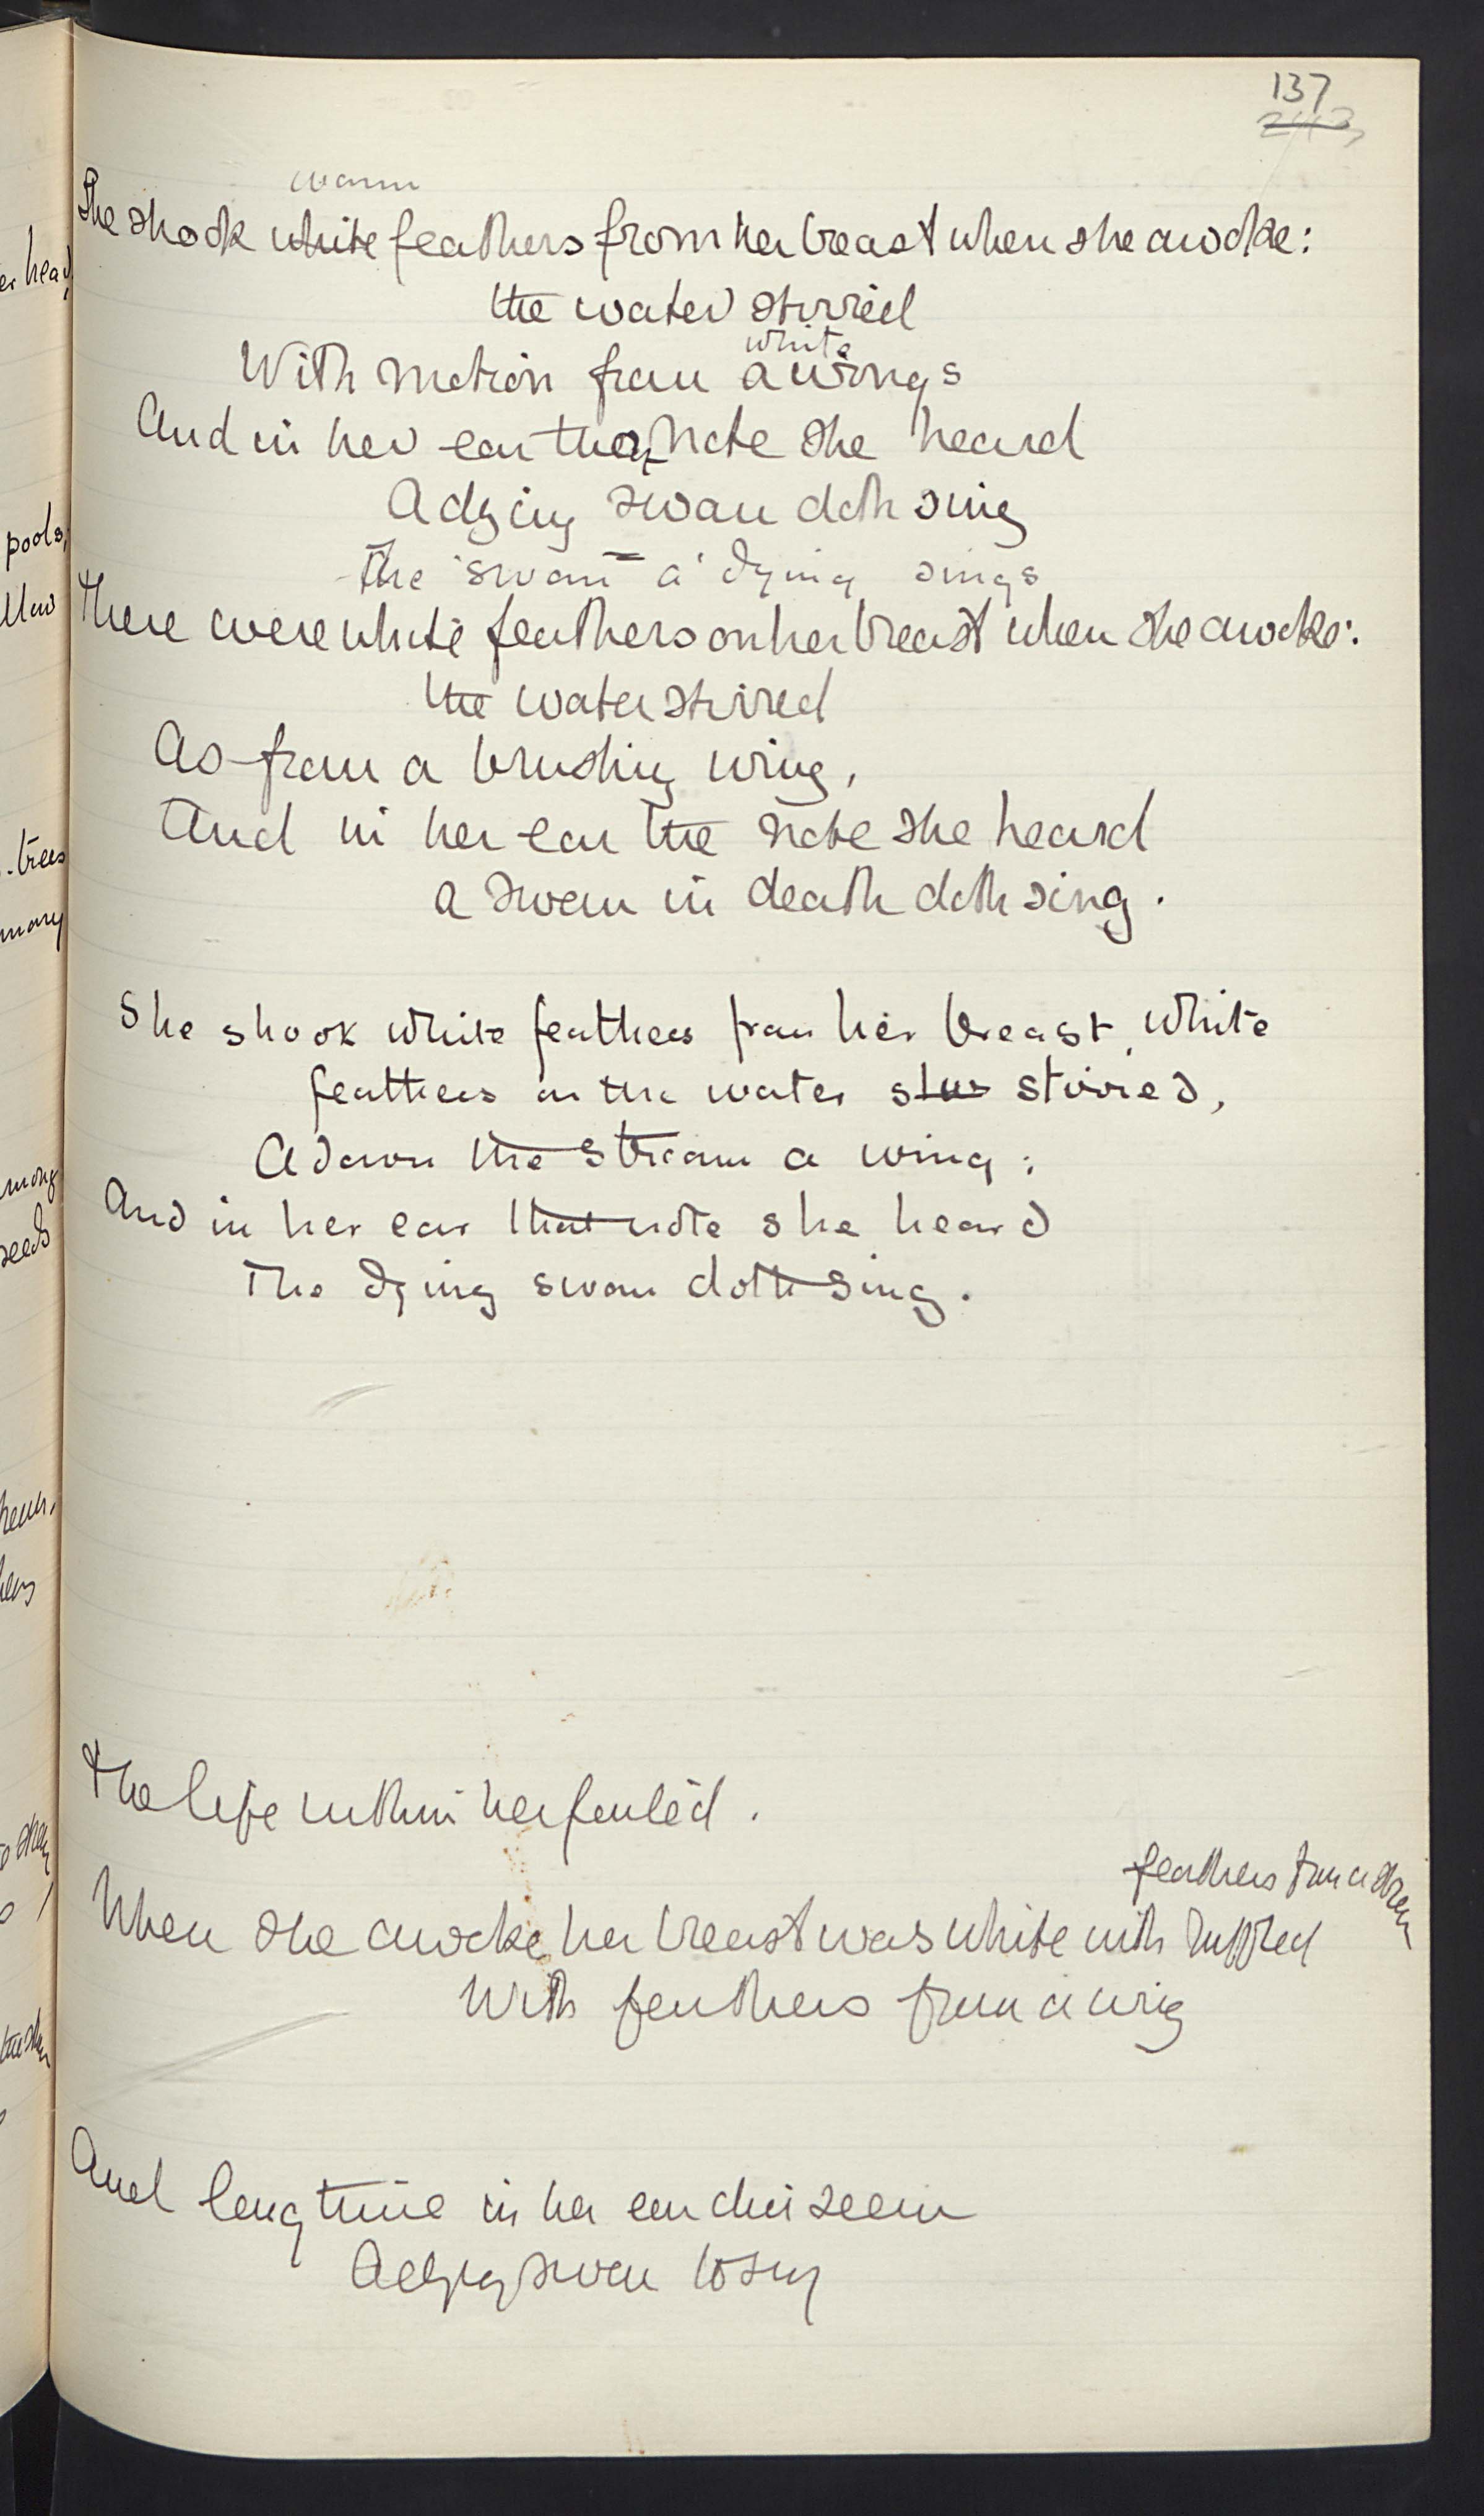 137
243
warm
She shook white feathers from her breast when she awoke:
the water stirred
white
With motion from a wings
And in her ear the note she heard
A dying swan doth sing
The swan a' dying sings
There were white feathers on her breast when she awoke:
the water stirred
As from a brushing wing,
And in her ear the note she heard
a swan in death doth sing.
She shook white feathers from her breast, white
feathers on the water stirred,
Adown the stream a wing;
And in her ear that note she heard
The dying swan doth sing.
The life within her
feathers from a
When she awoke her breast was white with ruffled
With feathers from a wing
And long time in her ear did seem
A dying swan to sing
er head
pools;
trees
many
among
reeds